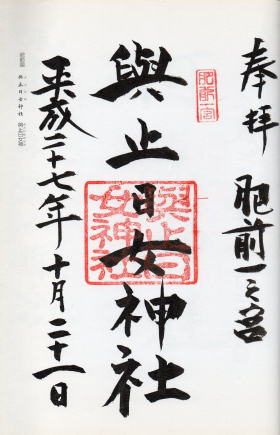 奉拝
肥前一之宮
肥前一宮
與止日女神社
與止日
女神社
平成二十七年十月二十一日
與止日女神社